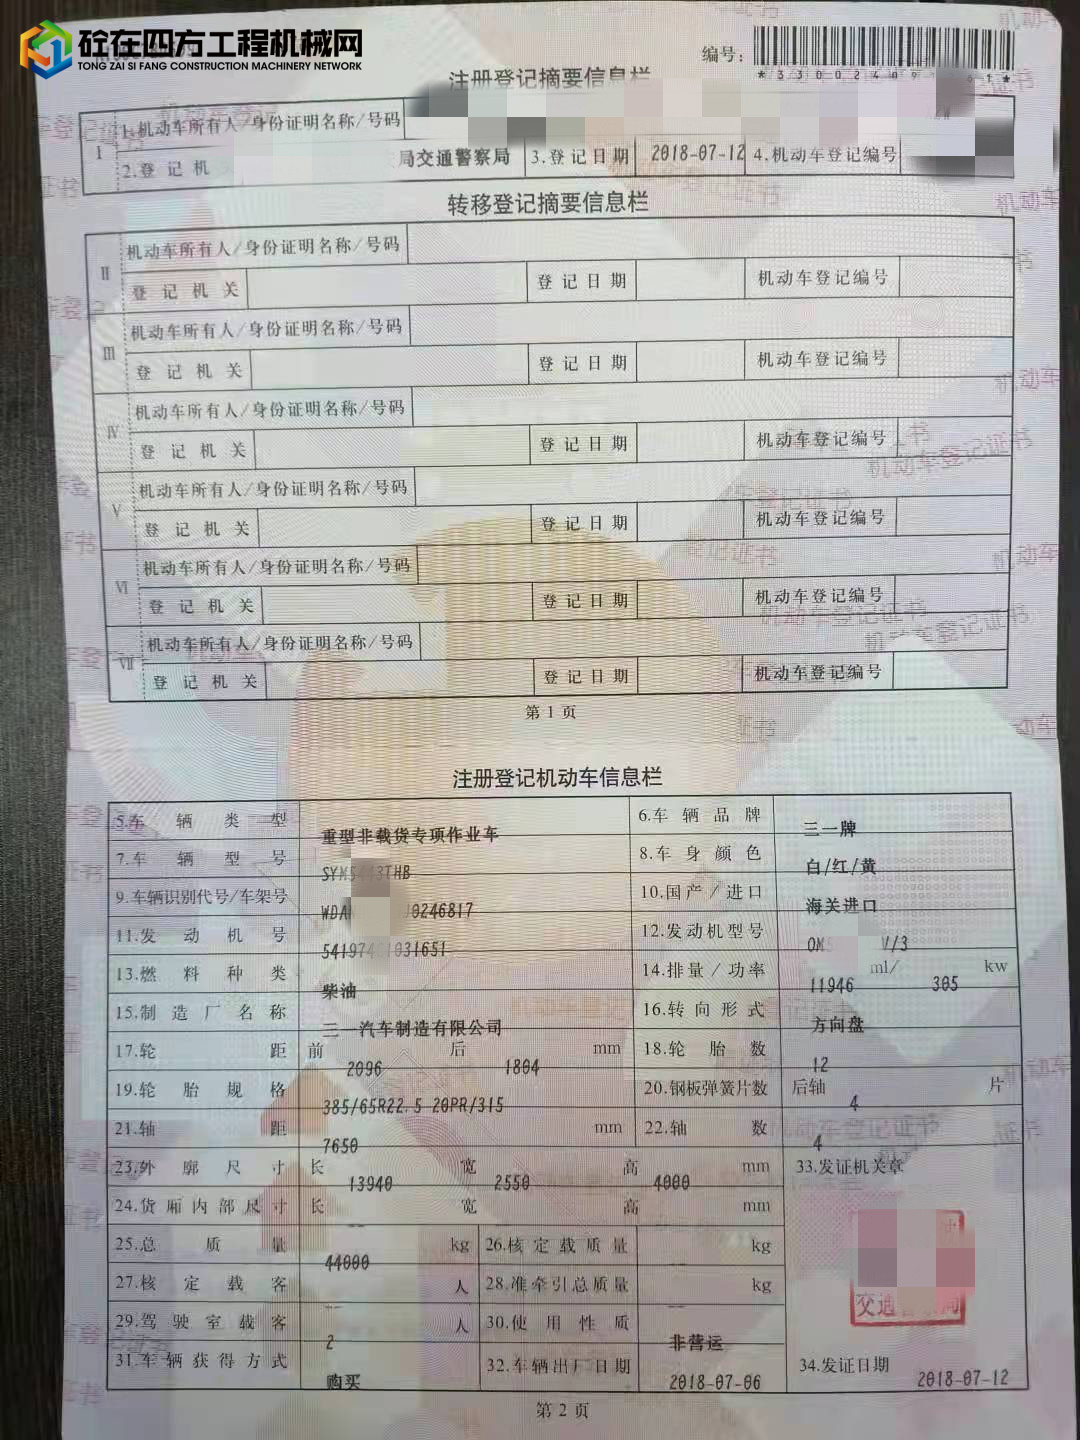 砼在四方工程机械网
TONG ZAI SI FANG CONSTRUCTION MACHINERY NETWORK
编号:
注册登记摘要信息栏
I 1.机动车所有人/身份证明名称/号码
2.登记机 局交通警察局 3.登记日期 2018-07-12 4.机动车登记编号
转移登记摘要信息栏
II 机动车所有人/身份证明名称/号码
登记机关 登记日期 机动车登记编号
III 机动车所有人/身份证明名称/号码
登记机关 登记日期 机动车登记编号
IV 机动车所有人/身份证明名称/号码
登记机关 登记日期 机动车登记编号
V 机动车所有人/身份证明名称/号码
登记机关 登记日期 机动车登记编号
VI 机动车所有人/身份证明名称/号码
登记机关 登记日期 机动车登记编号
VII 机动车所有人/身份证明名称/号码
登记机关 登记日期 机动车登记编号
第1页
注册登记机动车信息栏
5.车辆类型 重型非载货专项作业车 6.车辆品牌 三一牌
7.车辆型号 8.车身颜色 白/红/黄
9.车辆识别代号/车架号 J0246817 10.国产/进口 海关进口
11.发动机号 12.发动机型号 V/3
13.燃料种类 柴油 14.排量/功率 11946 ml/ 305 kw
15.制造厂名称 三一汽车制造有限公司 16.转向形式 方向盘
17.轮距 前 2096 后 1804 mm 18.轮胎数 12
19.轮胎规格 385/65R22.5 20PR/315 20.钢板弹簧片数 后轴 4 片
21.轴距 7650 mm 22.轴数 4
23.外廓尺寸 长 13940 宽 2550 高 4000 mm 33.发证机关章
24.货厢内部尺寸 长 -- 宽 -- 高 -- mm
25.总质量 44000 kg 26.核定载质量 -- kg
27.核定载客 -- 人 28.准牵引总质量 -- kg
29.驾驶室载客 2 人 30.使用性质 非营运
31.车辆获得方式 购买 32.车辆出厂日期 2018-07-06 34.发证日期 2018-07-12
第2页